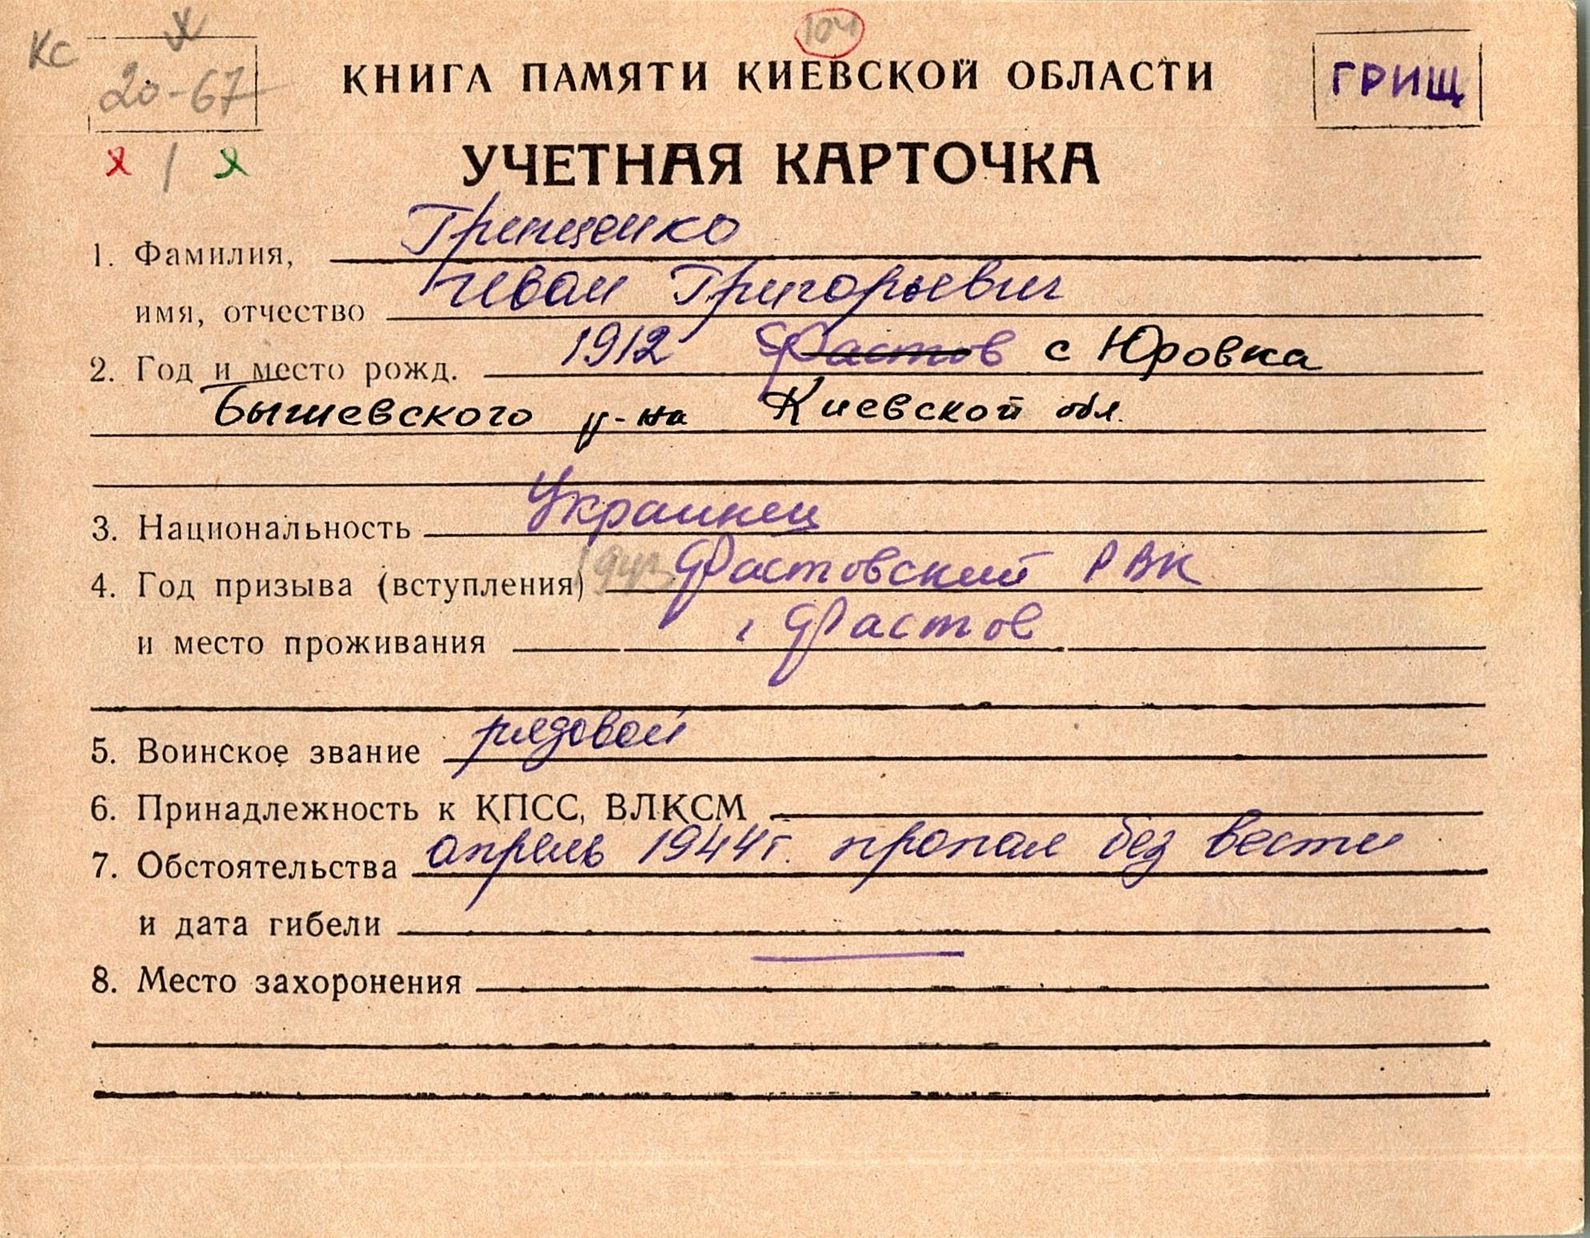 Кс
104
20-67
КНИГА ПАМЯТИ КИЕВСКОЙ ОБЛАСТИ
ГРИЩ
УЧЕТНАЯ КАРТОЧКА
1. Фамилия, Грищенко
имя, отчество Иван Григорьевич
2. Год и место рожд. 1912 Фастов с Юровка
Бышевского р-на Киевской обл.
3. Национальность Украинец
4. Год призыва (вступления) Фастовский РВК
и место проживания г Фастов
5. Воинское звание рядовой
6. Принадлежность к КПСС, ВЛКСМ
7. Обстоятельства апрель 1944 г. пропал без вести
и дата гибели
8. Место захоронения